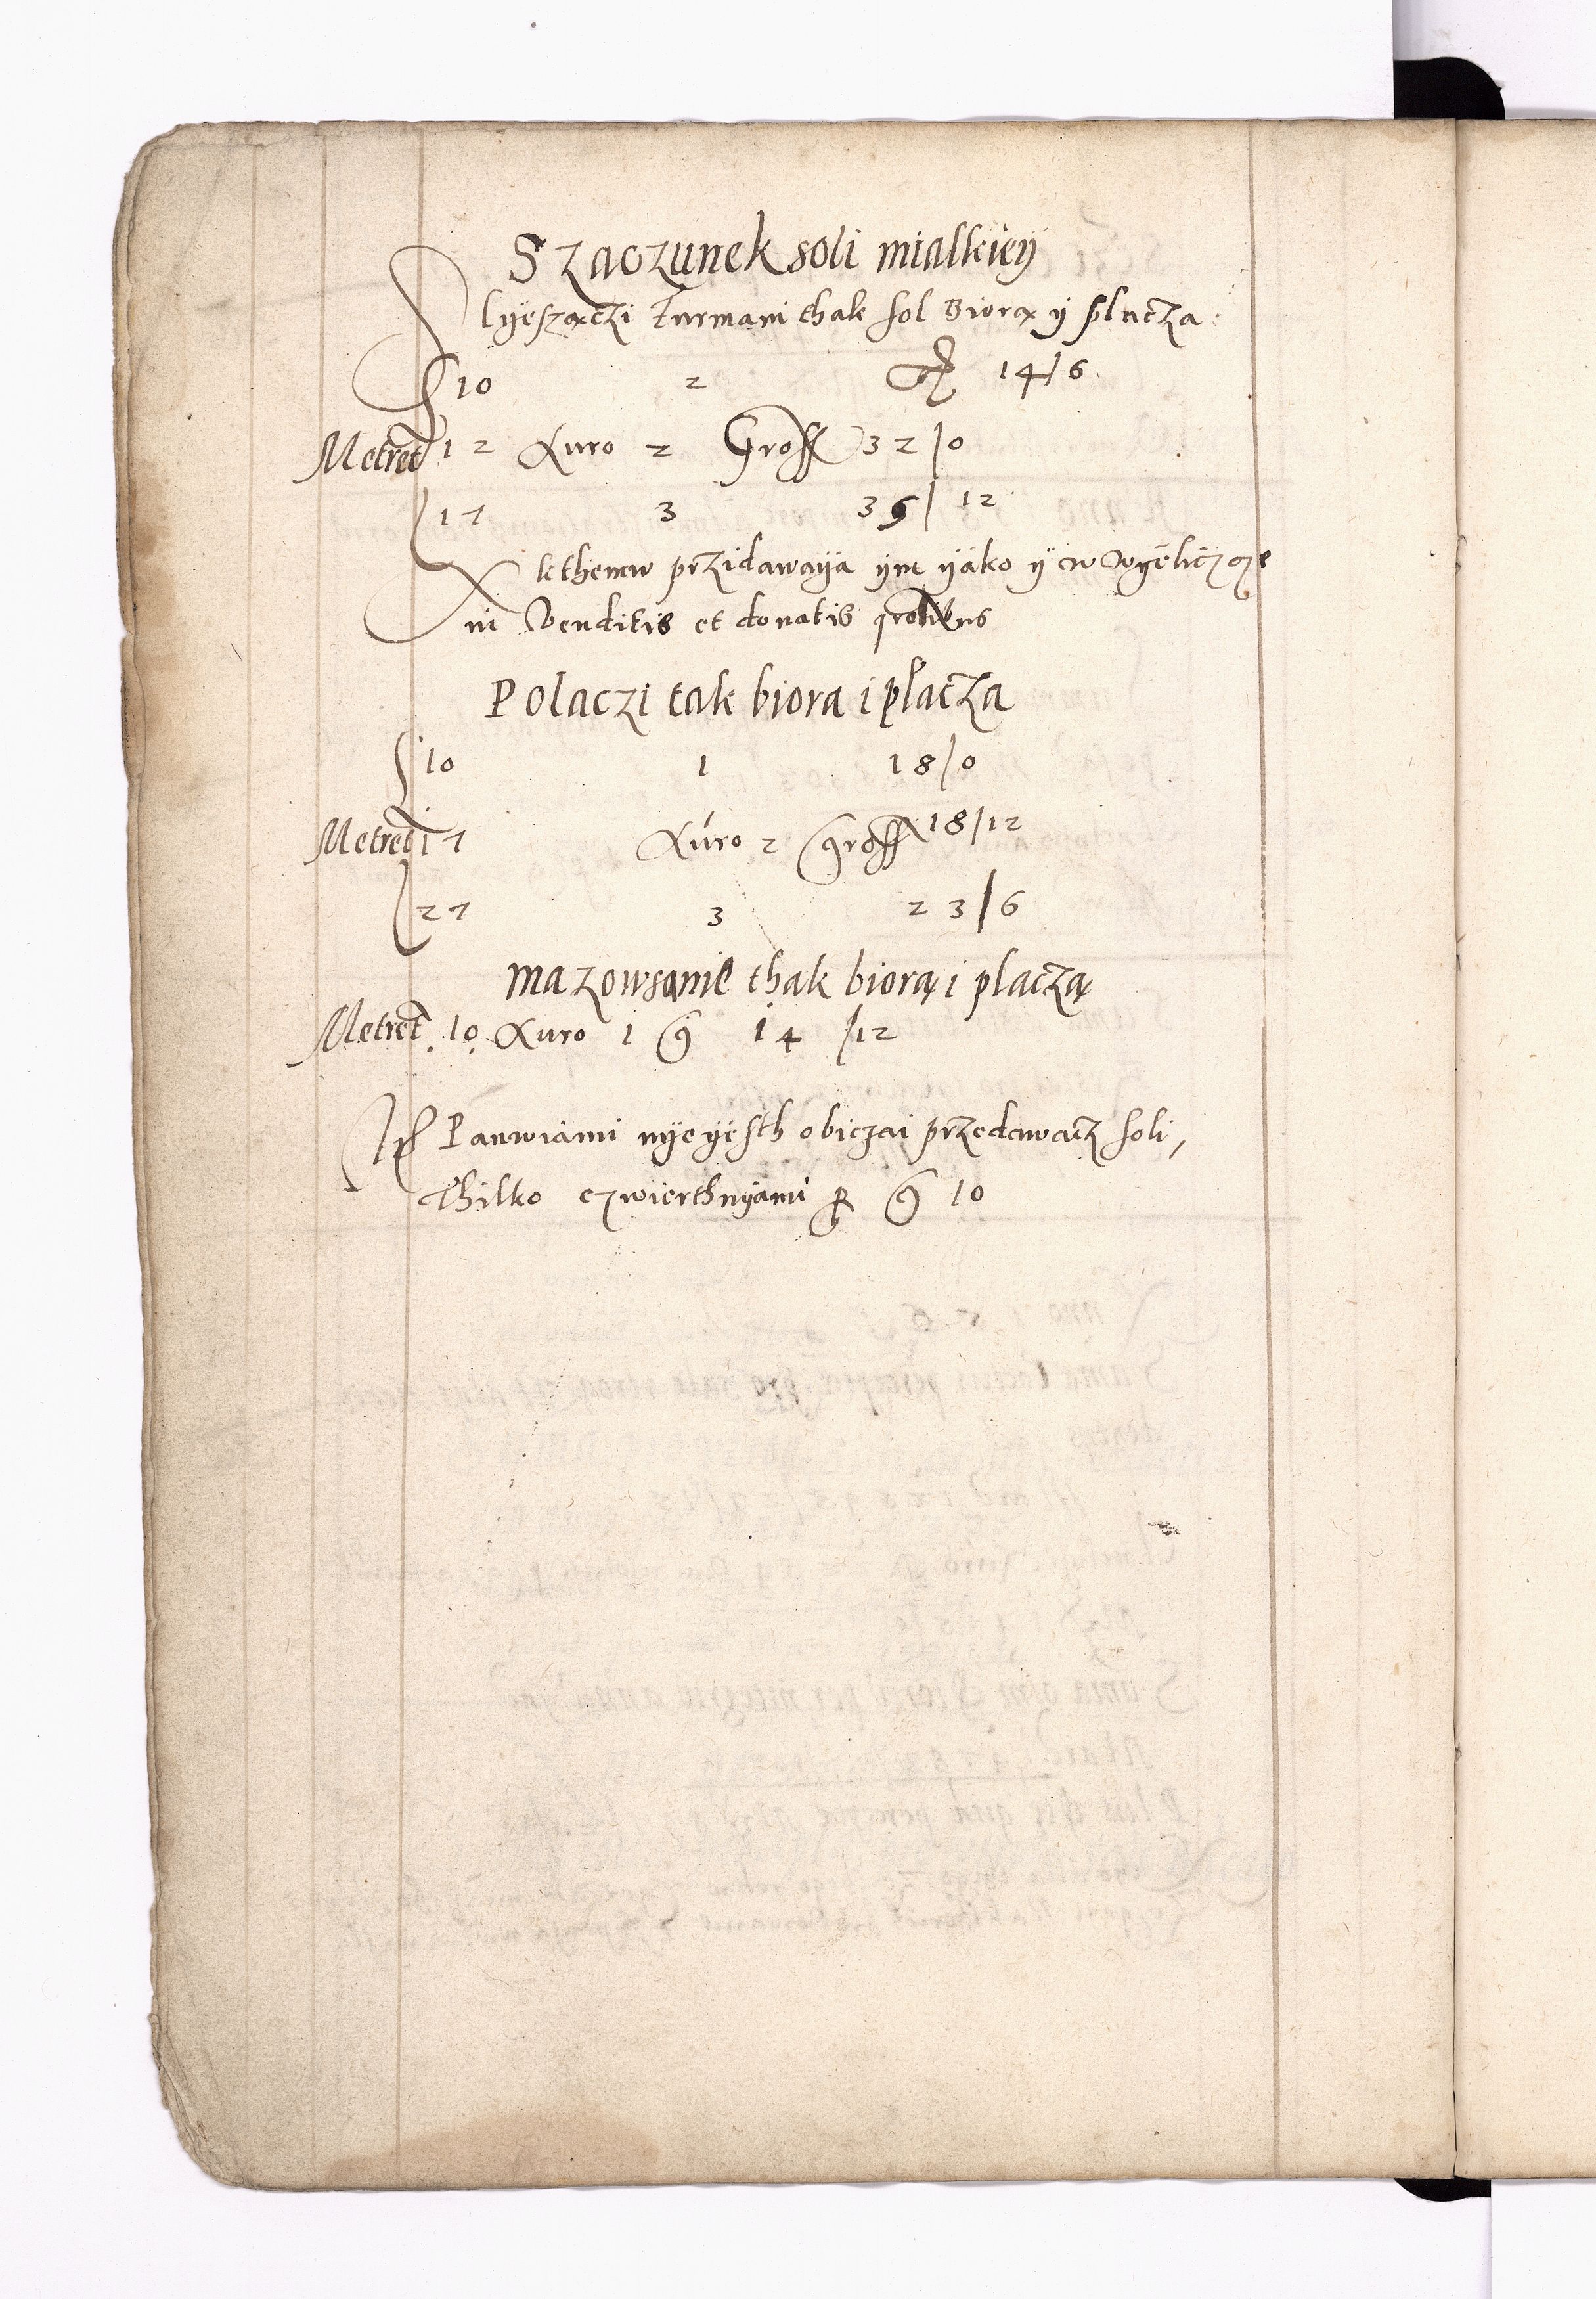 Szaczunek soli mialkiey
Slyeszaczi Furmani thak sol Biorą y placza
10 2 14/6
Metret 12 Auro 2 Gross 32/0
17 3 35/12
kthemw przidawaya ym yako y w Wyeliczcze
in Venditis et donatis
Polaczi tak biora i płacza
10 1 18/0
Metret 17 Auro 2 gross 18/12
27 3 23/6
mazowsanie thak biorą i placzą
Metret 10 Auro 1 g 14/12
Panwiami nye yesth obiczai przedawacz soli,
Thilko czwierthnyami g 10